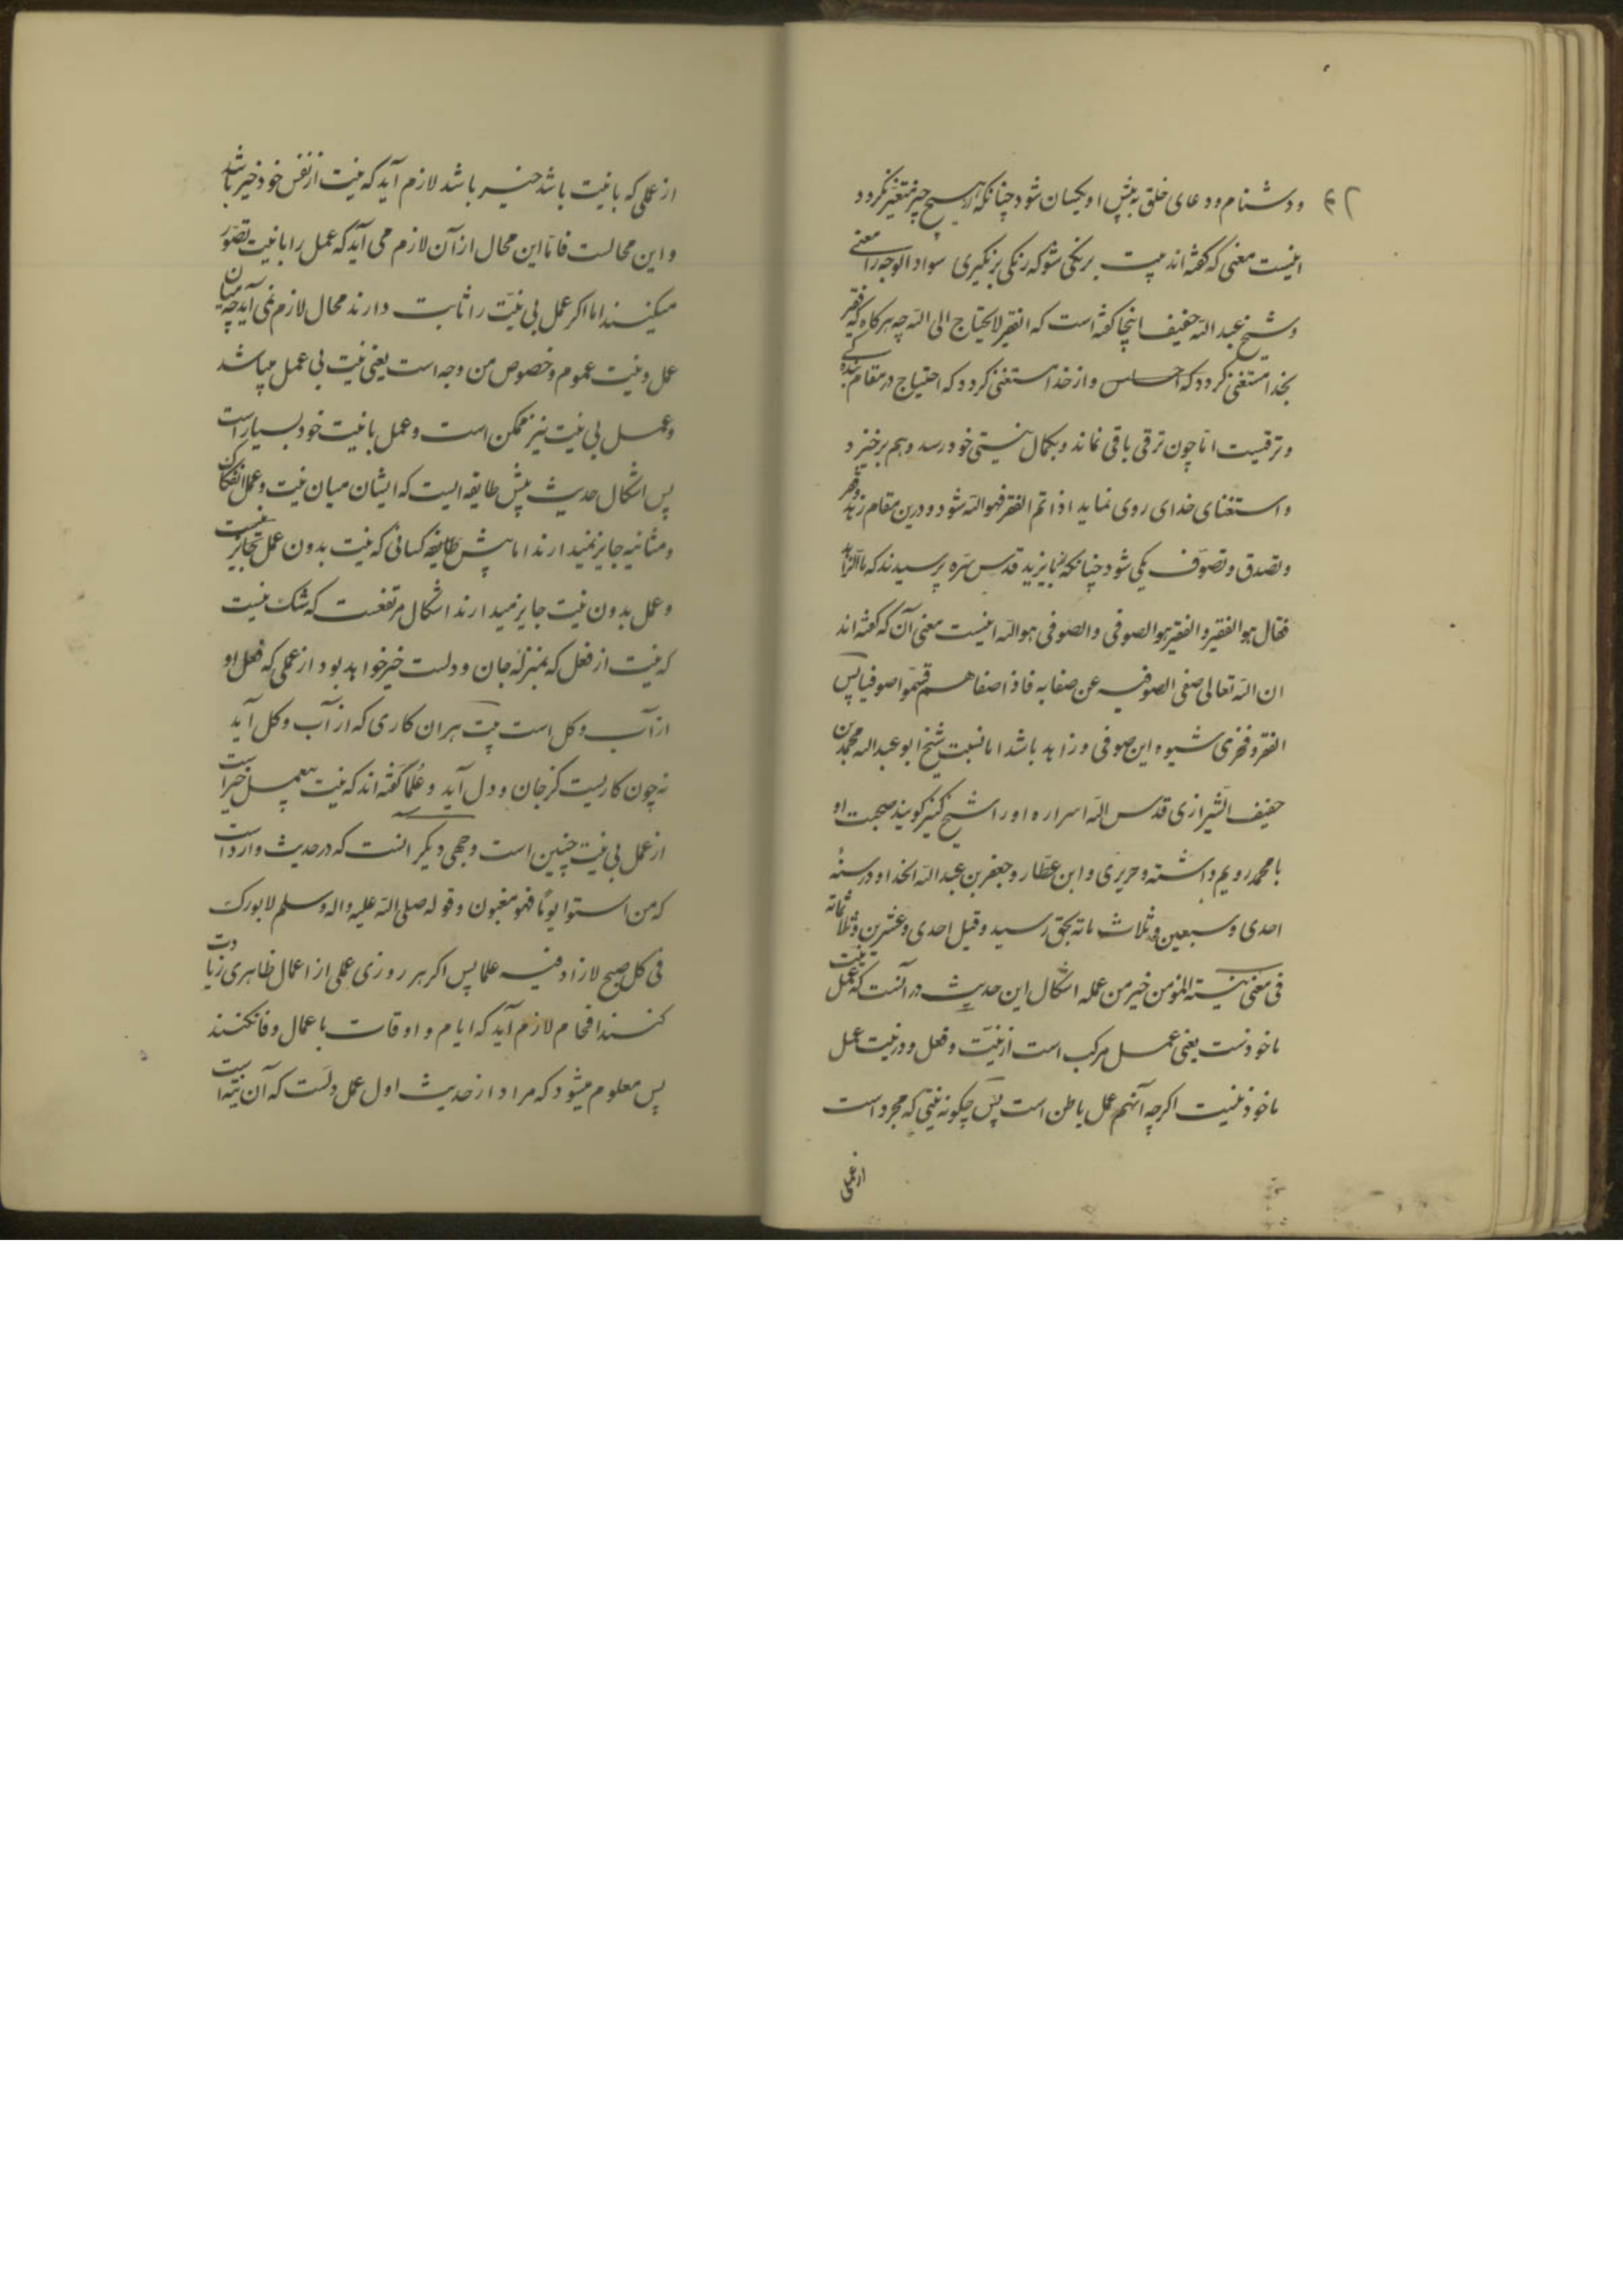 ۴۲
و دشنام و دعای خلق به پیش او یکسان شود چنانکه از هیچ چیز متغیر نکردد
اینست معنی که کفته‌اند بیت برنکی شو که رنکی برنکیری سواد الوجه را معنی
و شیخ عبد الله حفیف اینجا کفته است که الفقیر لا یحتاج الی الله چه هر کاه که فقیر
بخدا مستغنی کردد که احساس و از خدا مستغنی کردد که احتیاج در مقام بندکی
و ترقیست اما چون ترقی باقی نماند و بکمال نیستی خود رسد وهم برخیزد
و استغنای خدای روی نماید اذا تم الفقر فهو الله شود و درین مقام زهد و فقر
و تصدق و تصوف یکی شود چنانکه بایزید قدس سره پرسیدند که ما الزاهد
فقال هو الفقیر و الفقیر هو الصوفی و الصوفی هو الله اینست معنی آن که کفته‌اند
ان الله تعالی صفی الصوفیه عن صفاته فاذا صفاهم فسموا صوفیا پس
الفقر و فخری شیوه این صوفی و زاهد باشد اما نسبت شیخ ابو عبد الله محمد بن
حفیف الشیرازی قدس الله اسراره او را شیخ کبیر کویند صحبت او
با محمد رویم داشته و حریری و ابن عطار و جعفر بن عبد الله الخذا و در سنهٔ
احدی و سبعین و ثلاث مائه بحق رسید و قیل احدی و عشرین و ثلاثمائه
فی معنی نیة المؤمن خیر من عمله اشکال این حدیث در آنست که عمل نیت
ماخوذست یعنی عمل مرکب است از نیّت و فعل و در نیت عمل
ماخوذ نیست اکرچه آنهم عمل باطن است پس چکونه نیتی که مجرد است
از عملی
از عملی که با نیت باشد خیر باشد لازم آید که نیت از نفس خود خیر باشد
و این محالست فاما این محال از آن لازم می آید که عمل را با نیت تصوّر
میکنند اما اکر عمل بی نیّت را ثابت دارند محال لازم نمی آید چه میان
عمل و نیت عموم و خصوص من وجه است یعنی نیت بی عمل میباشد
و عمل بی نیت نیز ممکن است و عمل با نیت خود بسیار است
پس اشکال حدیث پیش طایفه ایست که ایشان میان نیت و عمل انفکاک
و مثانیه جایز نمیدارند اما پیش طایفه کسانی که نیت بدون عمل جایز نیست
و عمل بدون نیت جایز میدارند اشکال مرتفعست که شک نیست
که نیت از فعل که بمنزله جان و دلست خیر خواهد بود از عملی که فعل او
از آب و کل است بیت هر ان کاری که از آب و کل آید
نه چون کاریست کز جان و دل آید و علما کفته‌اند که نیت بعمل خیر است
از عمل بی نیت چنین است وجهی دیکر انست که در حدیث وارد است
که من استوا یوما فهو مغبون و قوله صلی الله علیه و اله وسلم لا بورک
فی کل صبح لا ازاد فیه علما پس اکر هر روزی عملی از اعمال ظاهری زیادت
کنند افحام لازم آید که ایام و اوقات با عمال وفا نکنند
پس معلوم میشود که مراد از حدیث اول عمل دلست که آن نیت است